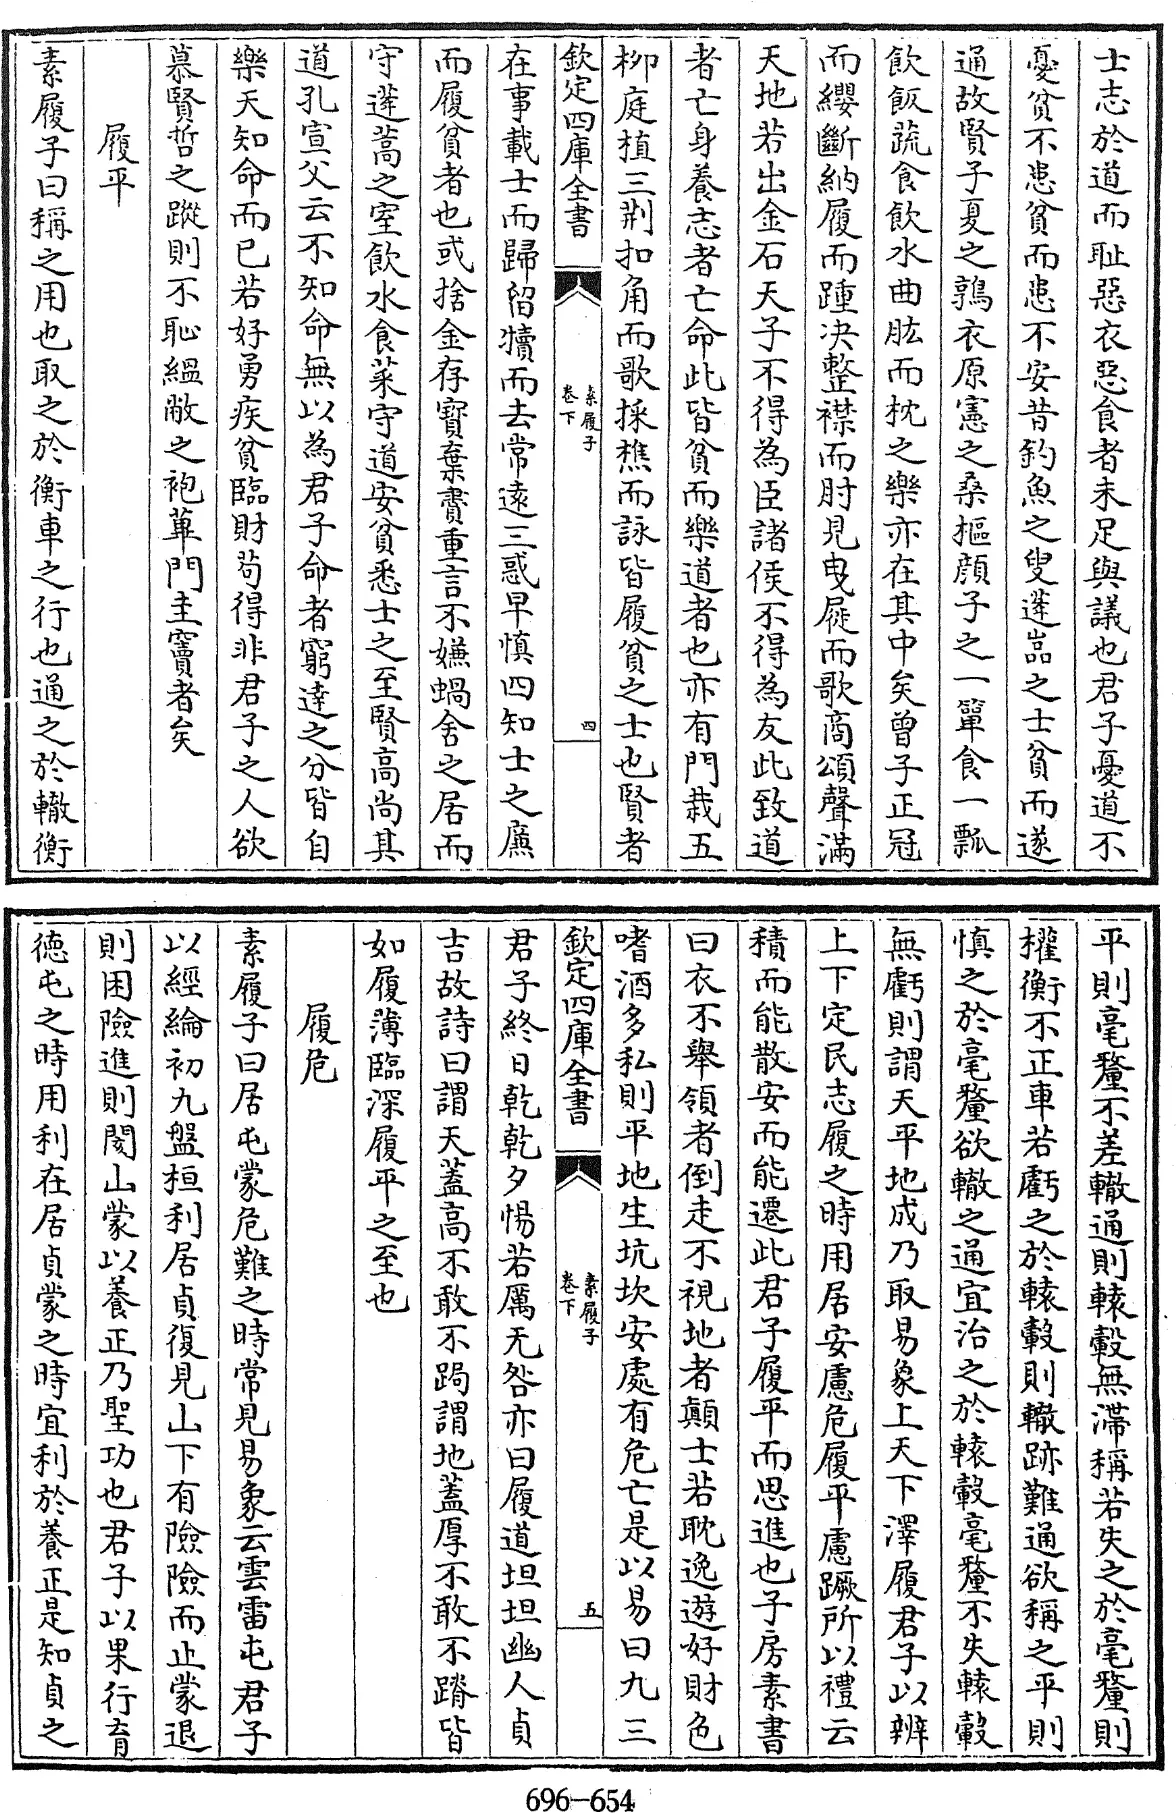 士志於道而耻惡衣惡食者未足與議也君子憂道不
憂貧不患貧而患不安昔釣魚之叟蓬蒿之士貧而遂
通故賢子夏之鶉衣原憲之桑樞顔子之一簞食一瓢
飲飯蔬食飲水曲肱而枕之樂亦在其中矣曾子正冠
而纓斷納履而踵决整襟而肘見曳屣而歌商頌聲滿
天地若出金石天子不得為臣諸侯不得為友此致道
者亡身養志者亡命此皆貧而樂道者也亦有門栽五
柳庭植三荆扣角而歌採樵而詠皆履貧之士也賢者
欽定四庫全書
素履子
卷下
四
在事載士而歸留犢而去常遠三惑早慎四知士之廉
而履貧者也或捨金存寳棄賣重言不嫌蝸舍之居而
守蓬蒿之室飲水食菜守道安貧悉士之至賢高尚其
道孔宣父云不知命無以為君子命者窮達之分皆自
樂天知命而已若好勇疾貧臨財茍得非君子之人欲
慕賢哲之蹤則不恥緼敝之袍蓽門圭竇者矣
履平
素履子曰稱之用也取之於衡車之行也通之於轍衡
平則毫釐不差轍通則轅轂無滯稱若失之於毫釐則
權衡不正車若虧之於轅轂則轍跡難通欲稱之平則
慎之於毫釐欲轍之通宜治之於轅轂毫釐不失轅轂
無虧則謂天平地成乃取易象上天下澤履君子以辨
上下定民志履之時用居安慮危履平慮蹶所以禮云
積而能散安而能遷此君子履平而思進也子房素書
曰衣不舉領者倒走不視地者顛士若耽逸遊好財色
嗜酒多私則平地生坑坎安處有危亡是以易曰九三
欽定四庫全書
素履子
卷下
五
君子終日乾乾夕惕若厲无咎亦曰履道坦坦幽人貞
吉故詩曰謂天蓋高不敢不跼謂地蓋厚不敢不蹐皆
如履薄臨深履平之至也
履危
素履子曰居屯蒙危難之時常見易象云雲雷屯君子
以經綸初九盤桓利居貞復見山下有險險而止蒙退
則困險進則閡山蒙以養正乃聖功也君子以果行育
德屯之時用利在居貞蒙之時宜利於養正是知貞之
696-654